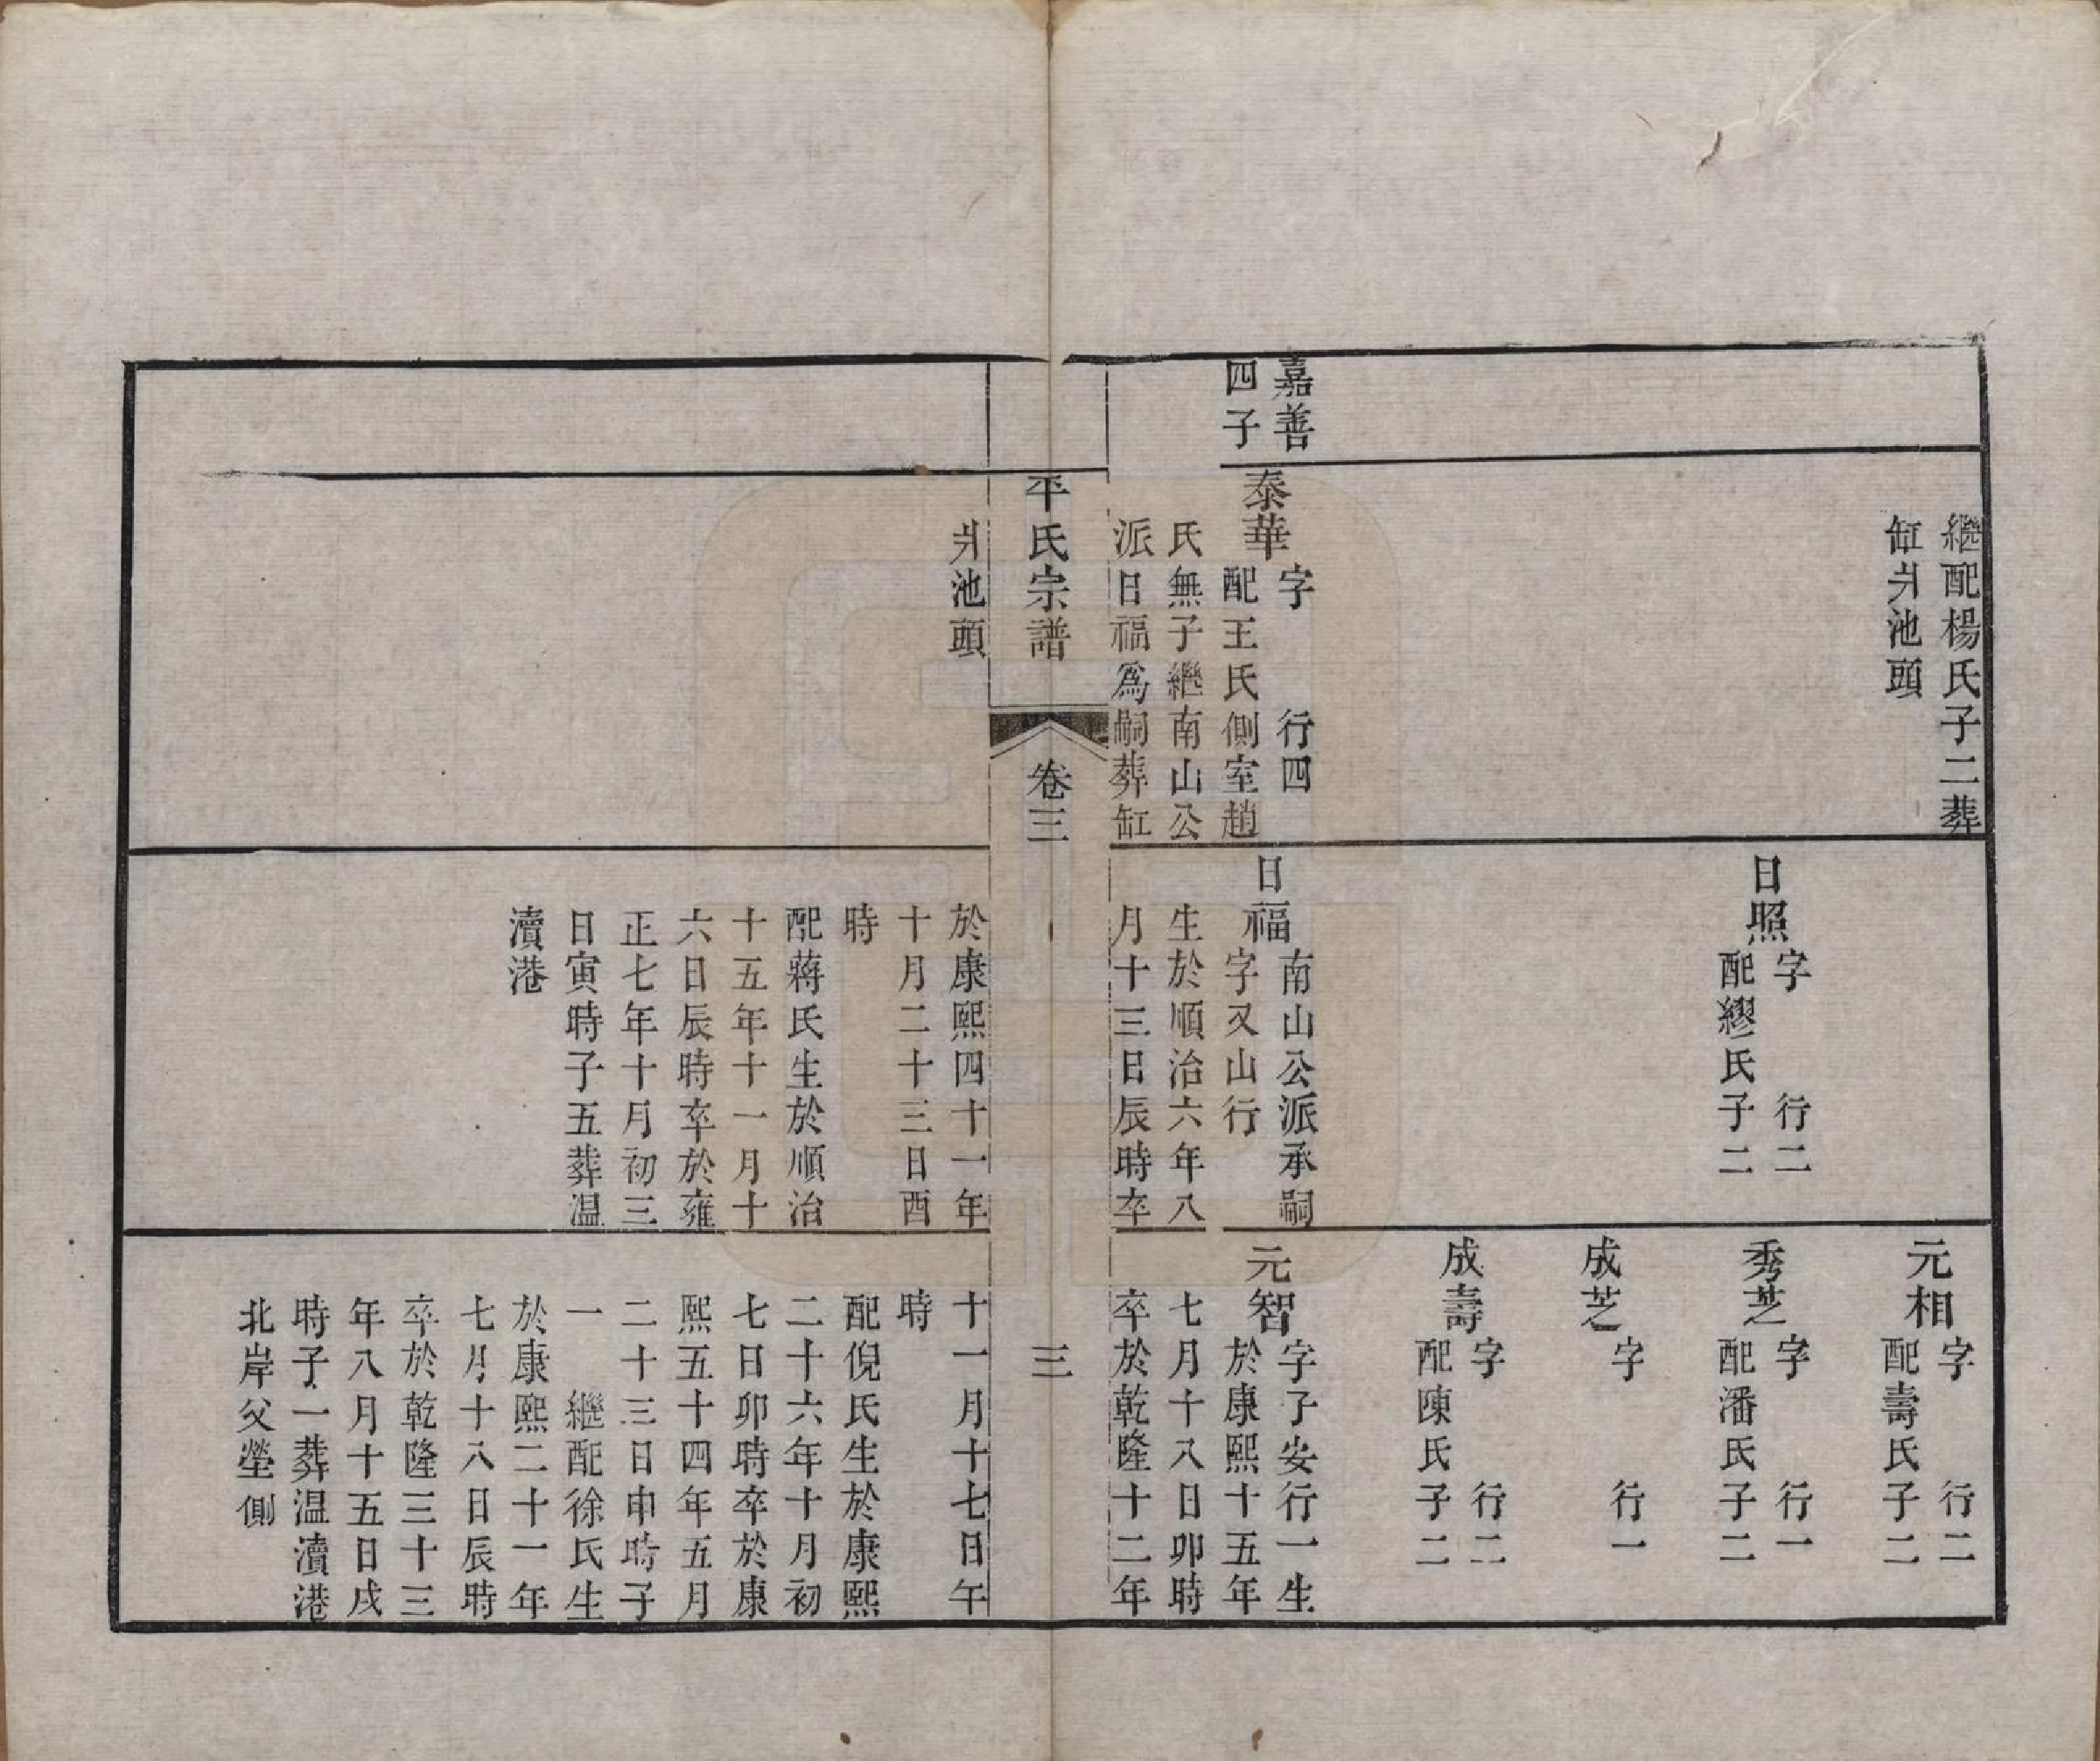 嘉善
四子
繼配楊氏子二葬
缸爿池頭
泰華
字 行四
配王氏側室趙
氏無子繼南山公
派日福為嗣葬缸
日照
字 行二
配繆氏子二
日福
南山公派承嗣
字又山行
生於順治六年八
月十三日辰時卒
元相
字 行二
配壽氏子二
秀芝
字 行一
配潘氏子二
成芝
字 行一
成壽
字 行二
配陳氏子二
元智
字子安行一生
於康熙十五年
七月十八日卯時
卒於乾隆十二年
平氏宗譜
卷三
三
爿池頭
於康熙四十一年
十月二十三日酉
時
配蔣氏生於順治
十五年十一月十
六日辰時卒於雍
正七年十月初三
日寅時子五葬溫
瀆港
十一月十七日午
時
配倪氏生於康熙
二十六年十月初
七日卯時卒於康
熙五十四年五月
二十三日申時子
一 繼配徐氏生
於康熙二十一年
七月十八日辰時
卒於乾隆三十三
年八月十五日戌
時子一葬溫瀆港
北岸父塋側